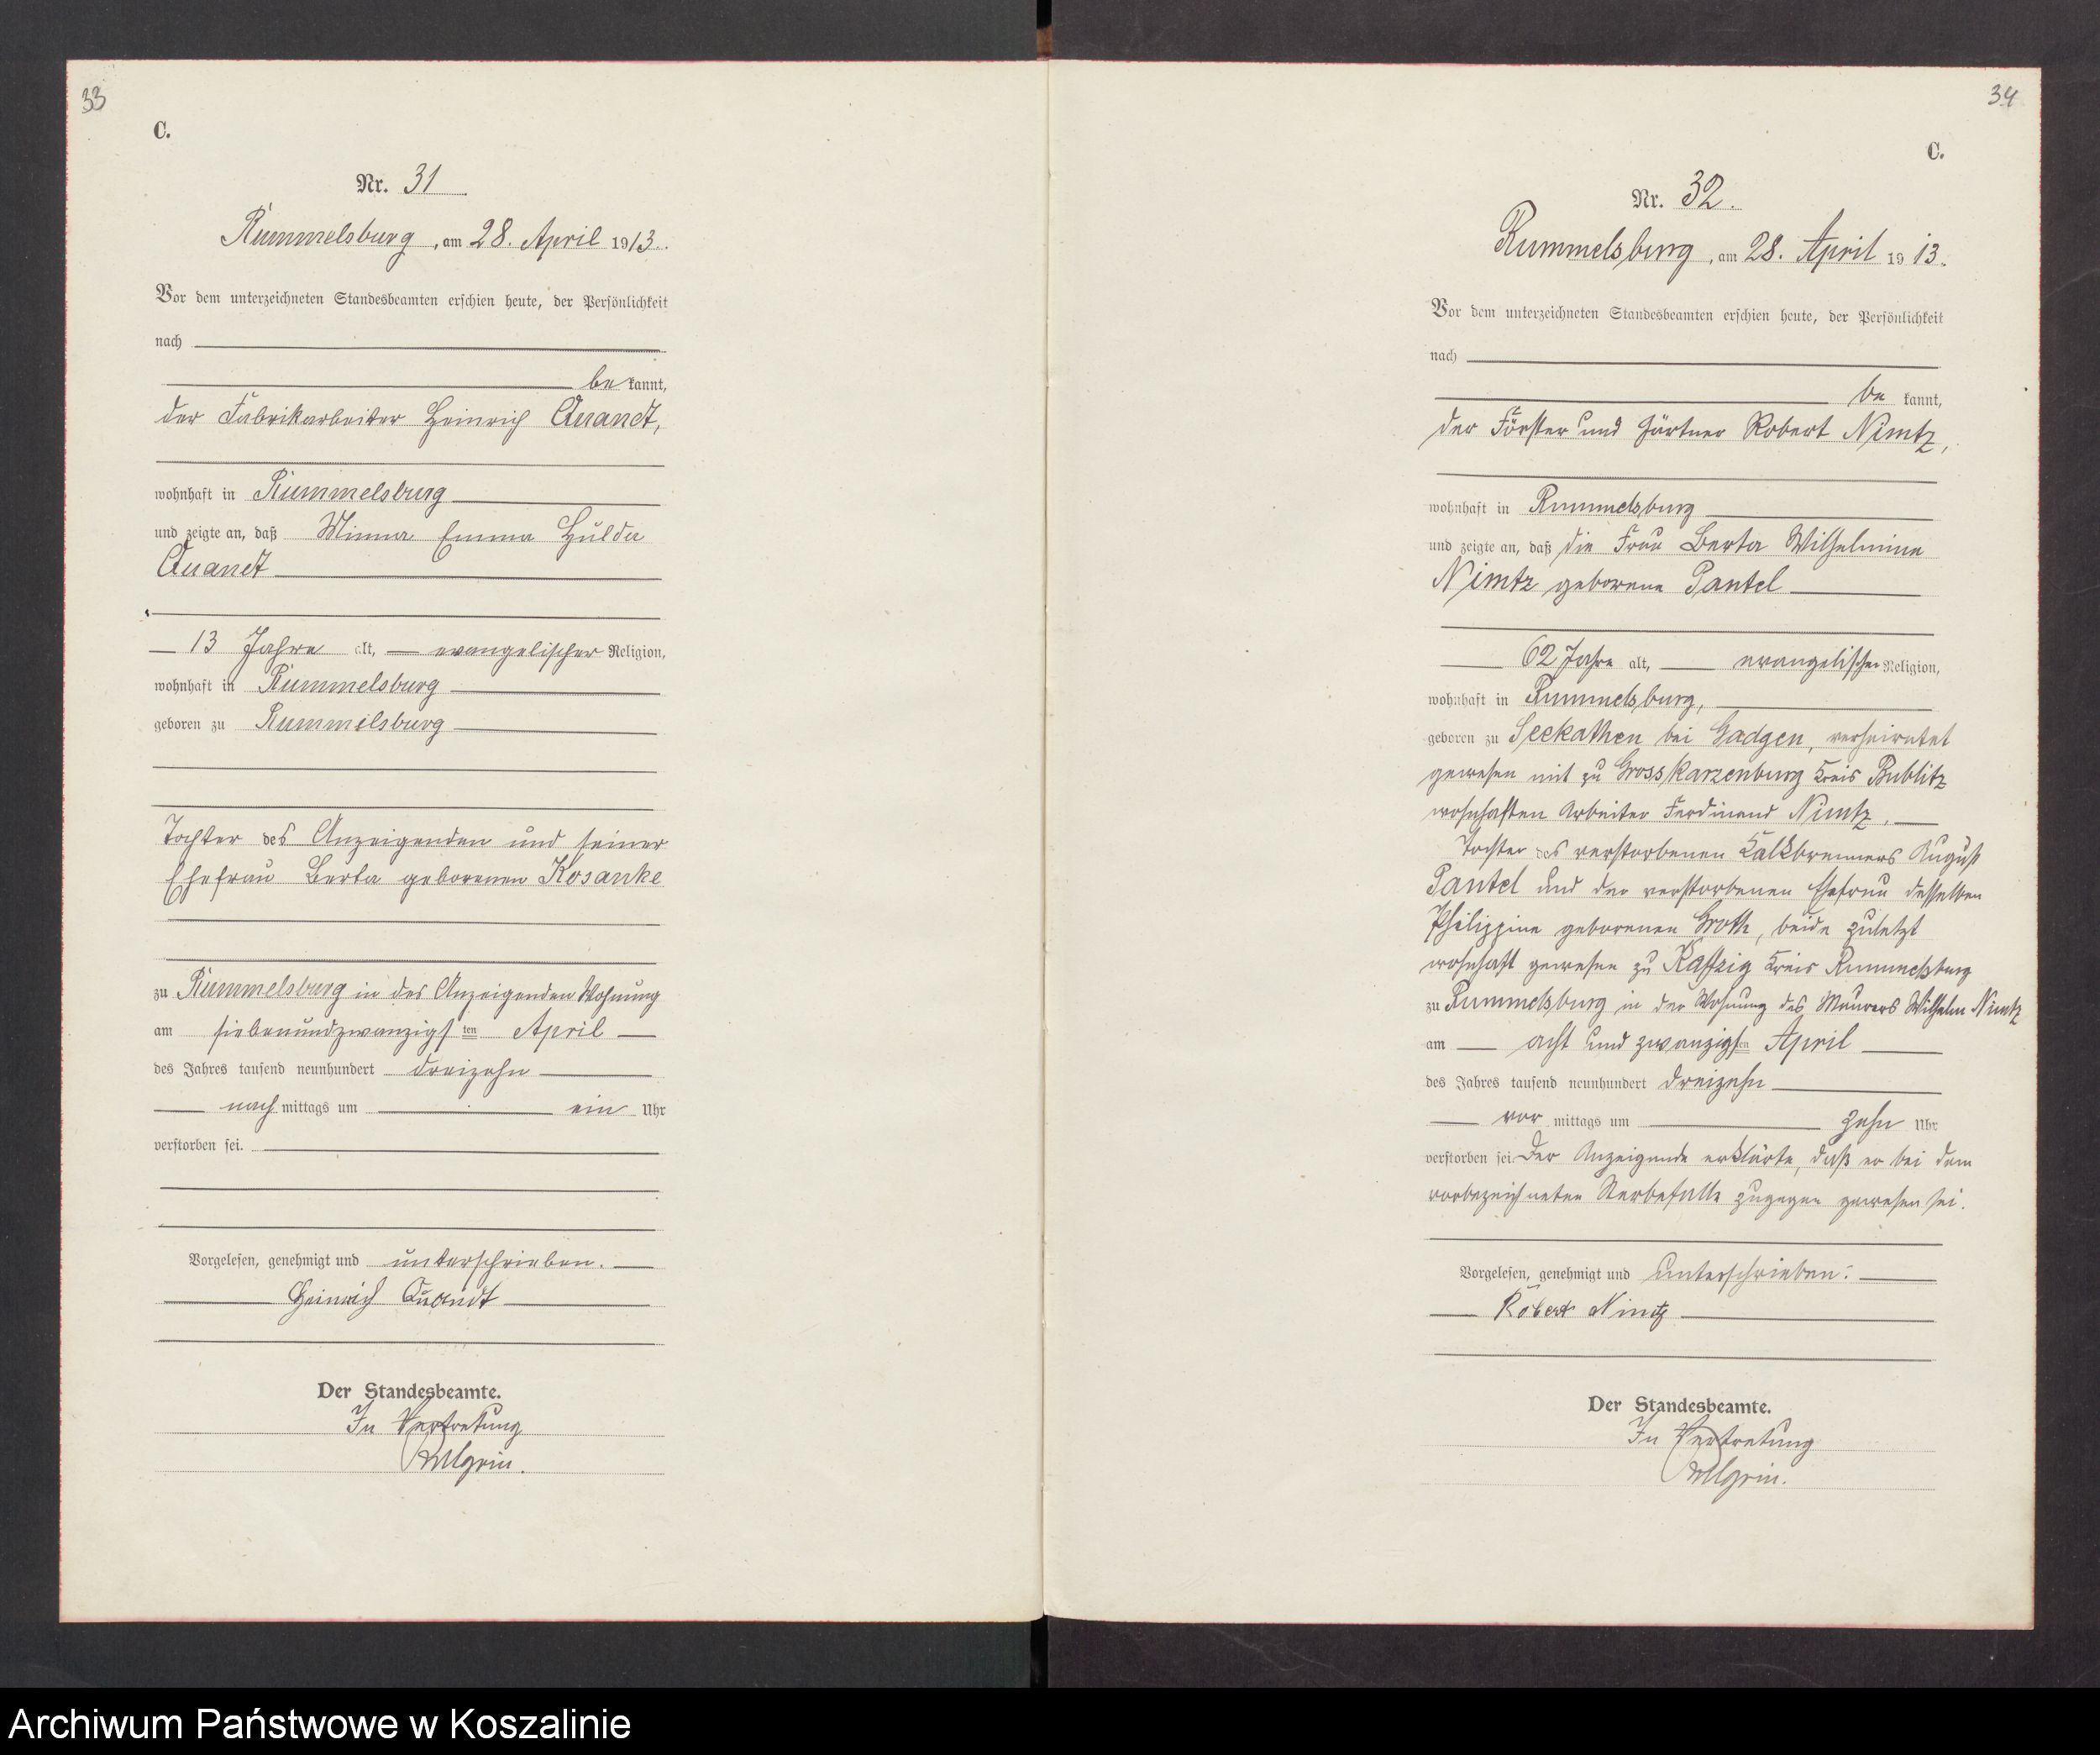 33
C.
Nr. 31
Rummelsburg, am 28. April 1913.
Vor dem unterzeichneten Standesbeamten erschien heute, der Persönlichkeit
nach
bekannt,
der Fabrikarbeiter Heinrich Quandt,
wohnhaft in Rummelsburg
und zeigte an, daß Minna Emma Hulda
Quandt
13 Jahre alt, evangelischer Religion,
wohnhaft in Rummelsburg
geboren zu Rummelsburg
Tochter des Anzeigenden und seiner
Ehefrau Berta geborenen Kosanke
zu Rummelsburg in des Anzeigenden Wohnung
am siebenundzwanzigsten April
des Jahres tausend neunhundert dreizehn
nachmittags um ein Uhr
verstorben sei.
Vorgelesen, genehmigt und unterschrieben.
Heinrich Quandt
Der Standesbeamte.
In Vertretung
34
C.
Nr. 32.
Rummelsburg, am 28. April 1913.
Vor dem unterzeichneten Standesbeamten erschien heute, der Persönlichkeit
nach
bekannt,
der Förster und Gärtner Robert Nimtz,
wohnhaft in Rummelsburg
und zeigte an, daß die Frau Berta Wilhelmine
Nimtz geborene Pantel
62 Jahre alt, evangelischer Religion,
wohnhaft in Rummelsburg,
geboren zu Seekathen bei Gadgen, verheiratet
gewesen mit zu Gross Karzenburg Kreis Bublitz
wohnhaften Arbeiter Ferdinand Nimtz.
Tochter des verstorbenen Kalkbrenners August
Pantel und der verstorbenen Ehefrau desselben
Philippine geborenen Groth, beide zuletzt
wohnhaft gewesen zu Kaffzig Kreis Rummelsburg
zu Rummelsburg in der Wohnung des Maurers Wilhelm Nimtz
am acht und zwanzigsten April
des Jahres tausend neunhundert dreizehn
vormittags um zehn Uhr
verstorben sei. Der Anzeigende erklärte, daß er bei dem
vorbezeichneten Sterbefalle zugegen gewesen sei.
Vorgelesen, genehmigt und unterschrieben:
Robert Nimtz
Der Standesbeamte.
In Vertretung
Archiwum Państwowe w Koszalinie